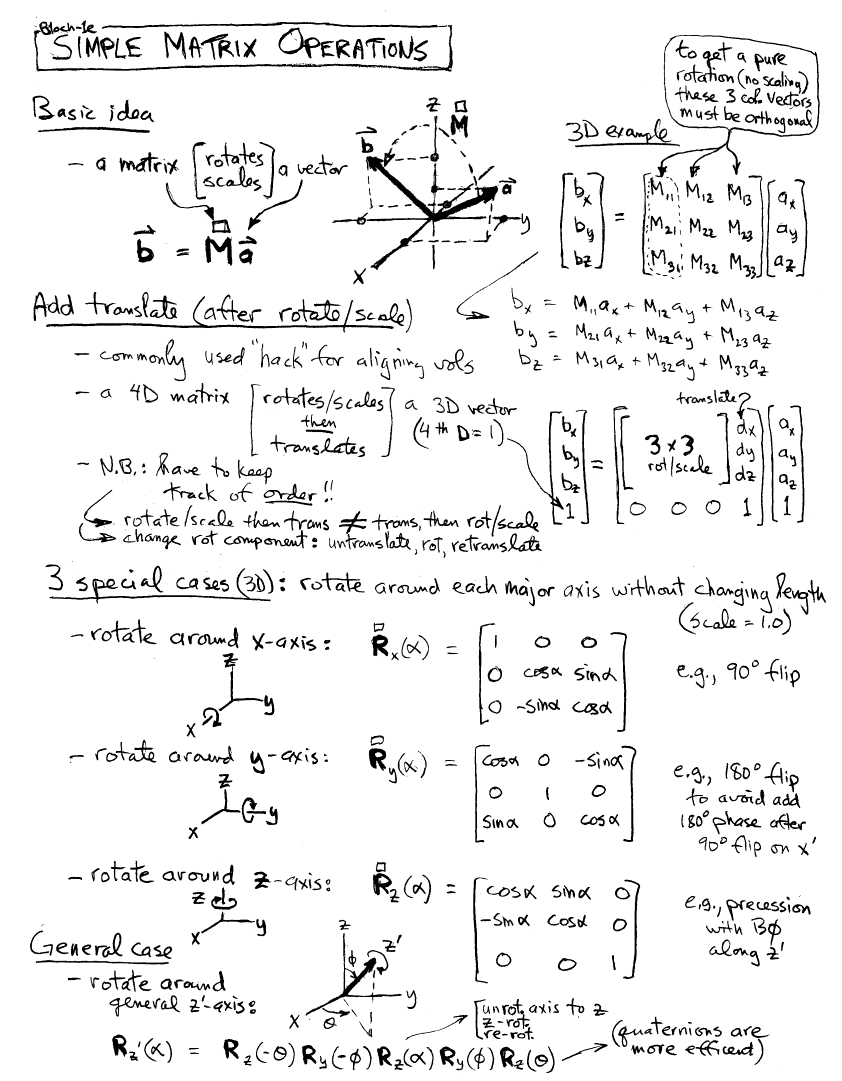 Bloch-1e
SIMPLE MATRIX OPERATIONS
to get a pure
rotation (no scaling)
these 3 col. vectors
must be orthogonal
Basic idea
- a matrix [rotates scales] a vector
b = M a
z
M
b
a
y
x
3D example
[bx by bz] = [M11 M12 M13 M21 M22 M23 M31 M32 M33] [ax ay az]
bx = M11ax + M12ay + M13az
by = M21ax + M22ay + M23az
bz = M31ax + M32ay + M33az
Add translate (after rotate/scale)
- commonly used "hack" for aligning vols
- a 4D matrix [rotates/scales then translates] a 3D vector
(4th D=1)
translate?
[bx by bz 1] = [[3×3 rot/scale] dx dy dz 0 0 0 1] [ax ay az 1]
- N.B.: have to keep
track of order!!
rotate/scale then trans ≠ trans, then rot/scale
change rot component: untranslate, rot, retranslate
3 special cases (3D): rotate around each major axis without changing length
(scale = 1.0)
- rotate around x-axis: Rx(α) =
1 0 0
0 cosα sinα
0 -sinα cosα
e.g., 90° flip
z
y
x
- rotate around y-axis: Ry(α) =
cosα 0 -sinα
0 1 0
sinα 0 cosα
e.g., 180° flip
to avoid add
180° phase after
90° flip on x'
z
y
x
- rotate around z-axis: Rz(α) =
cosα sinα 0
-sinα cosα 0
0 0 1
e.g., precession
with BΦ
along z'
z
y
x
General case
- rotate around
general z'-axis:
z
z'
ϕ
y
x
θ
[unrot. axis to z
z-rot.
re-rot.
Rz'(α) = Rz(-θ) Ry(-ϕ) Rz(α) Ry(ϕ) Rz(θ)
(quaternions are
more efficent)